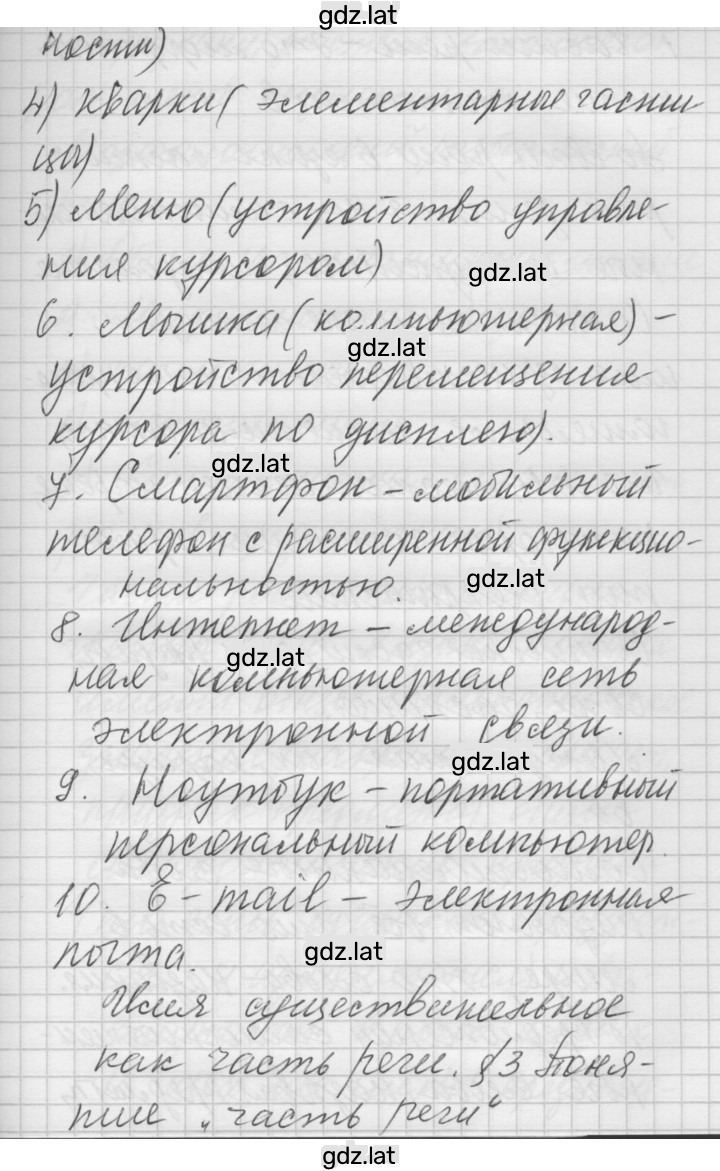 gdz.lat
ности)
4) кварки( элементарные части-
цы)
5) Меню (устройство управле-
ния курсором)
gdz.lat
6. Мышка (компьютерная) -
gdz.lat
устройство перемещения
курсора по дисплею).
gdz.lat
7. Смартфон - мобильный
телефон с расширенной функцио-
нальностью.
gdz.lat
8. Интернет - международ-
gdz.lat
ная компьютерная сеть
электронной связи.
gdz.lat
9. Ноутбук - портативный
персональный компьютер.
10. E-mail - электронная
почта.
gdz.lat
Имя существительное
как часть речи. §3 Поня-
тие „часть речи“
gdz.lat